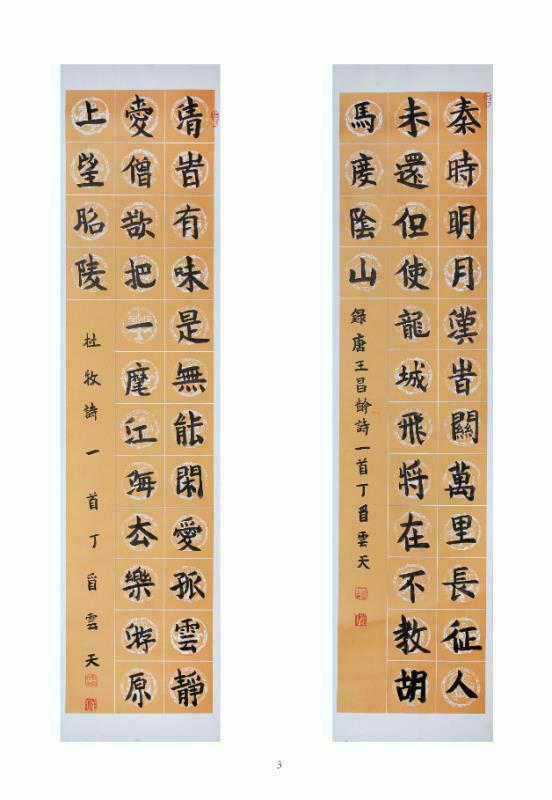 秦時明月漢旹關萬里長征人
未還但使龍城飛將在不教胡
馬度陰山
錄唐王昌齡詩一首丁酉雲天
清旹有味是無能閑愛孤雲靜
愛僧欲把一麾江海厺樂游原
上望昭陵
杜牧詩一首丁酉雲天
3